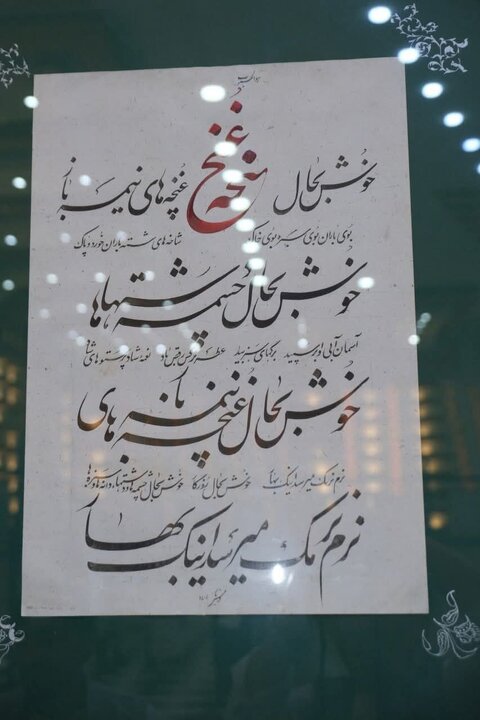 غنچه
خوش بحال غنچه های نیمه باز
بوی باران بوی سبزه بوی خاک شاخه های شسته باران خورده پاک
خوش بحال چشمه ها و دشتها
آسمان آبی و ابر سپید برگهای سبز بید عطر نرگس رقص باد نغمه پرستوهای شاد
خوش بحال غنچه های نیمه باز
نرم نرمک میرسد اینک بهار خوش بحال روزگار خوش بحال چشمه ها و دشتها و دانه ها و سبزه ها
نرم نرمک میرسد اینک بهار